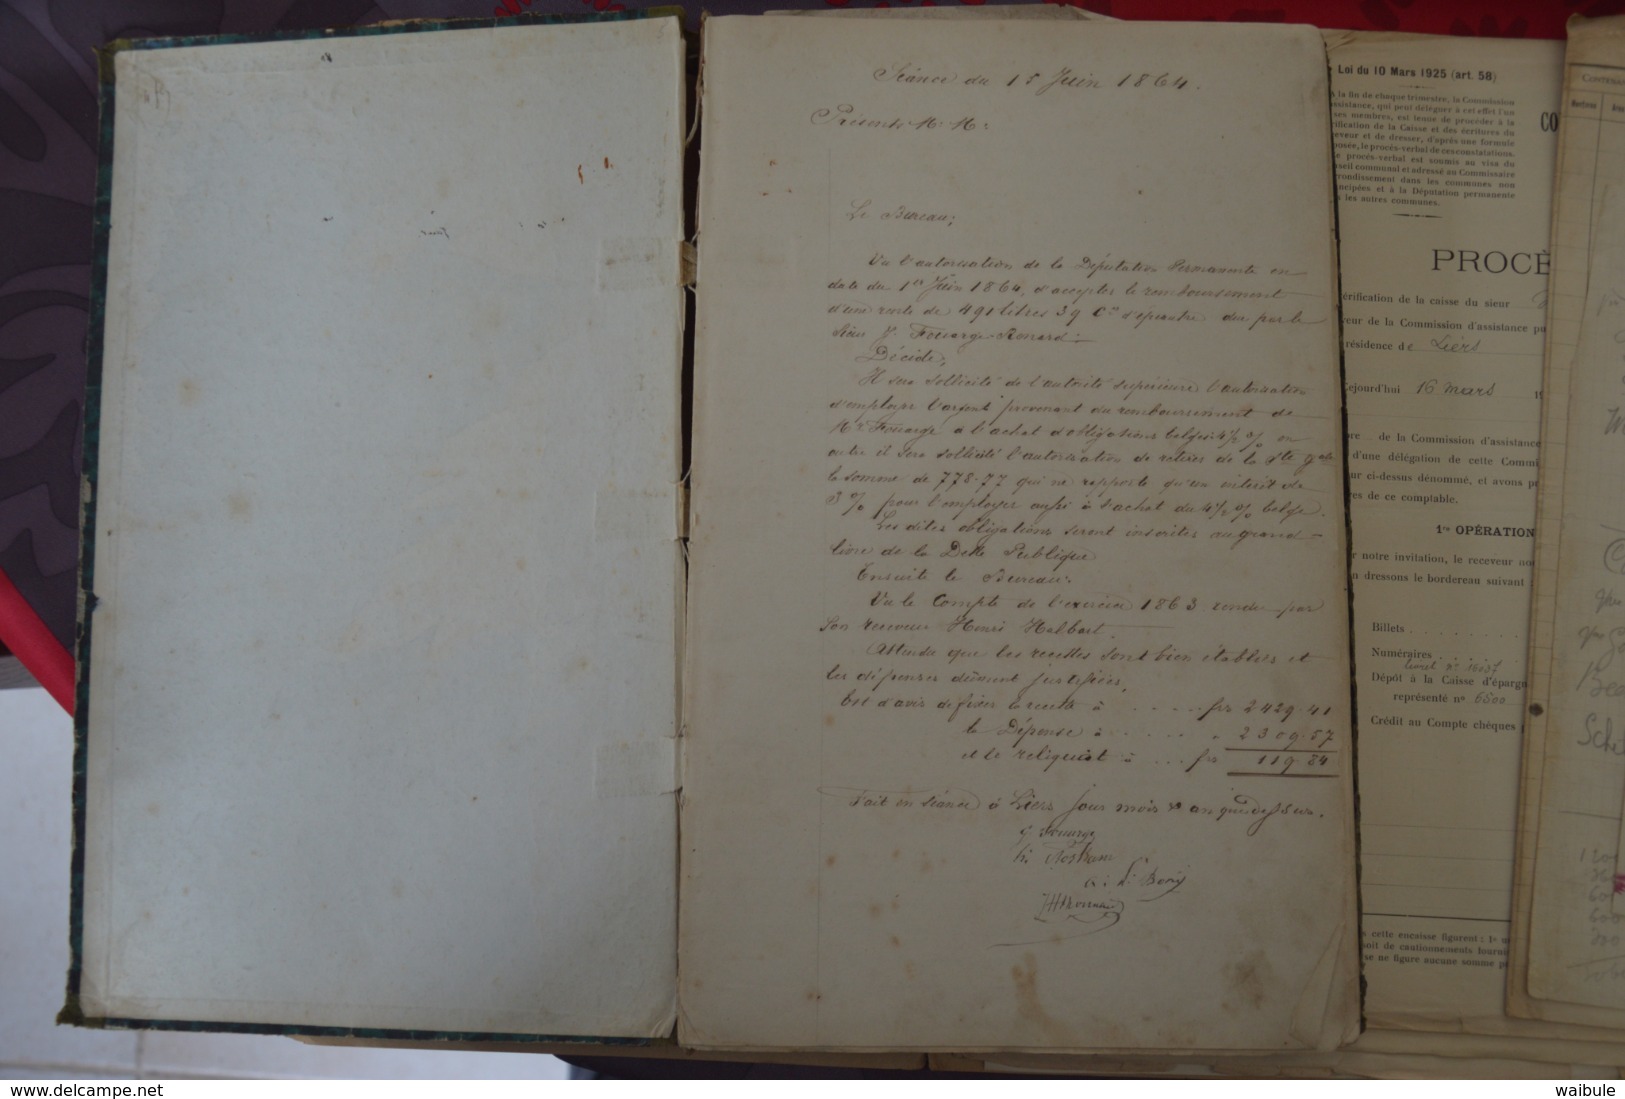 Séance du 15 Juin 1864.
Présents M. M:
Le Bureau;
Vu l'autorisation de la Députation Permanente en
date du 1er Juin 1864, d'accepter le remboursement
d'une rente de 491 litres 39 Cs d'épeautre due par le
Sieur J. Fouarge-Renard:-
Décide;
Il sera sollicité de l'autorité supérieure l'autorisation
d'employer l'argent provenant du remboursement de
Mr Fouarge a l'achat d'obligations belges 4 1/2 % en
outre il sera sollicité l'autorisation de retirer de la Ste gale
la somme de 778-77 qui ne rapporte qu'un intérêt de
3 % pour l'employer aussi à l'achat du 4 1/2 % belge.
Les dites obligations seront inscrites au grand-
livre de la Dette Publique
Ensuite le Bureau:
Vu le Compte de l'exercice 1863 rendu par
son receveur Henri Halbart.
Attendu que les recettes sont bien établies et
les dépenses dûment justifiées,
Est d'avis de fixer la recette à . . . . . frs 2429.41
la Dépense à . . . . . . 2309.57
et le reliquat à . . . frs 119.84
Fait en séance à Liers jour mois & an que dessus.
J. Fouarge
Loi du 10 Mars 1925 (art. 58)
A la fin de chaque trimestre, la Commission
assistance, qui peut déléguer à cet effet l'un
ses membres, est tenue de procéder à la
rification de la Caisse et des écritures du
ceveur et de dresser, d'après une formule
posée, le procès-verbal de ces constatations.
e procès-verbal est soumis au visa du
seil communal et adressé au Commissaire
rrondissement dans les communes non
ncipées et à la Députation permanente
s les autres communes.
CO
PROCÈ
érification de la caisse du sieur
veur de la Commission d'assistance pu
résidence de Liers
Cejourd'hui 16 mars 19
bre de la Commission d'assistance
d'une délégation de cette Commi
ur ci-dessus dénommé, et avons p
res de ce comptable.
1re OPÉRATION
r notre invitation, le receveur no
n dressons le bordereau suivant :
Billets . . . . . .
Numéraires . . . .
livret n° 18037
Dépôt à la Caisse d'épargn
représenté n° 6500
Crédit au Compte chèques
s cette encaisse figurent : 1°
soit de cautionnements fourni
se ne figure aucune somme p
CONTENAN
Hectares
delcampe.net
waibule